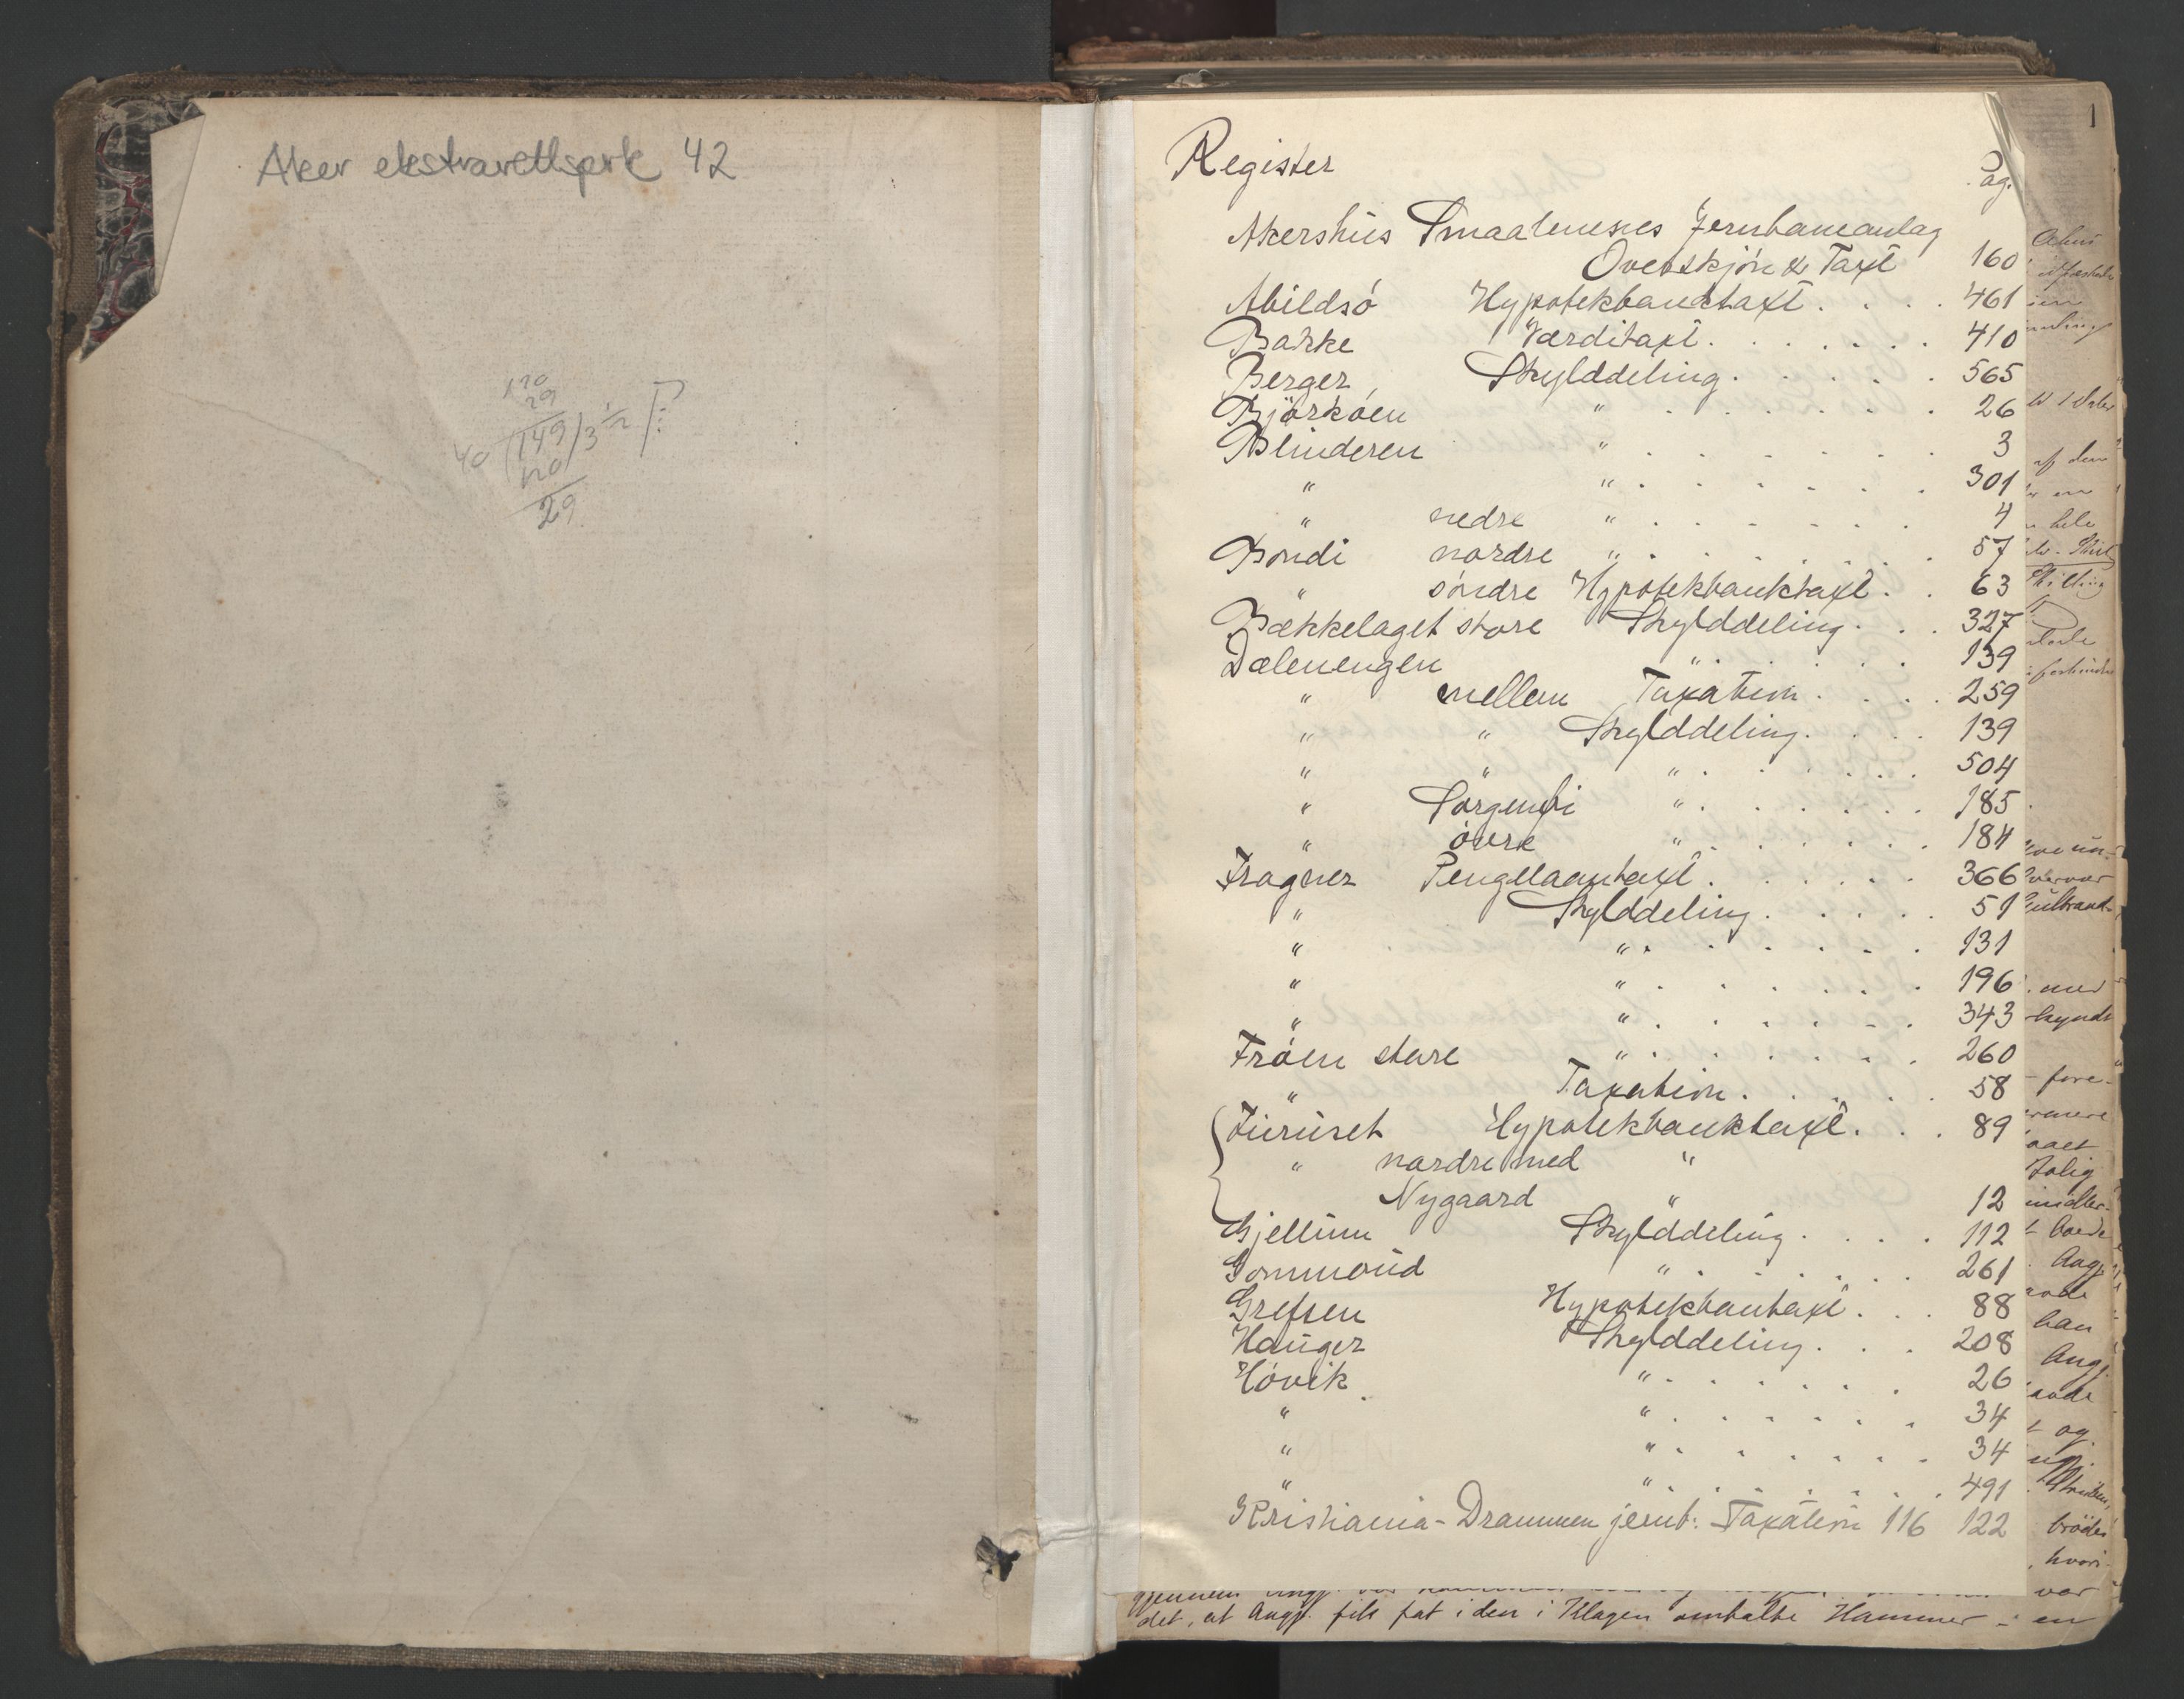 Aker ekstrarettsprk 42
120
29
40 / 149 / 3 1/2
120
29
Register
Pag.
Akershus Smaalenenes Jernbaneanlag
Overskjön & Taxt 160
Abildsö Hypotekbanktaxt . . . 461
Bakke Værditaxt . . . . . . 410
Berger Skylddeling . . . . . 565
Björköen " . . . . . . 26
Blinderen " . . . . . . 3
" " . . . . . . 301
" nedre " . . . . . . 4
Bondi nordre " . . . . . . 57
" söndre Hypotekbanktaxt . . 63
Bækkelaget store Skylddeling . . . 327
Dælenengen " . . . . . 139
" mellem Taxation . . . . 259
" " Skylddeling . . . . 139
" " " . . . . . . 504
" Sorgenfri " . . . . . . 185
" övre " . . . . . . 184
Frogner Pengelaantaxt . . . . . . 366
" Skylddeling . . . . . 51
" " . . . . . . 131
" " . . . . . . 196
" " . . . . . . 343
Fröen store " . . . . . . 260
" Taxation . . . . . . 58
Furuset Hypotekbanktaxt . . . 89
" nordre med "
Nygaard " 12
Gjellum Skylddeling . . . . 112
Gommoud " . . . . . . 261
Grefsen Hypotekbantaxt . . . 88
Hauger Skylddeling . . . 208
Hövik " . . . . . . 26
" " . . . . . . 34
" " . . . . . . 34
" " . . . . . . 491
Kristiania-Drammen jernb: Taxation 116 122
det, at Angj. fik fat i den i Klagen omtalte Hammer - en
1
af dem
hele
med
fore-
han
Ang.
og
hvori
var